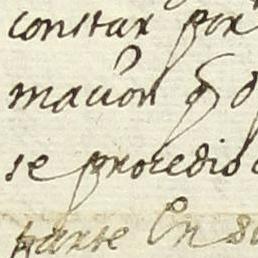 constar por
macion q̃
se procedio
parte En